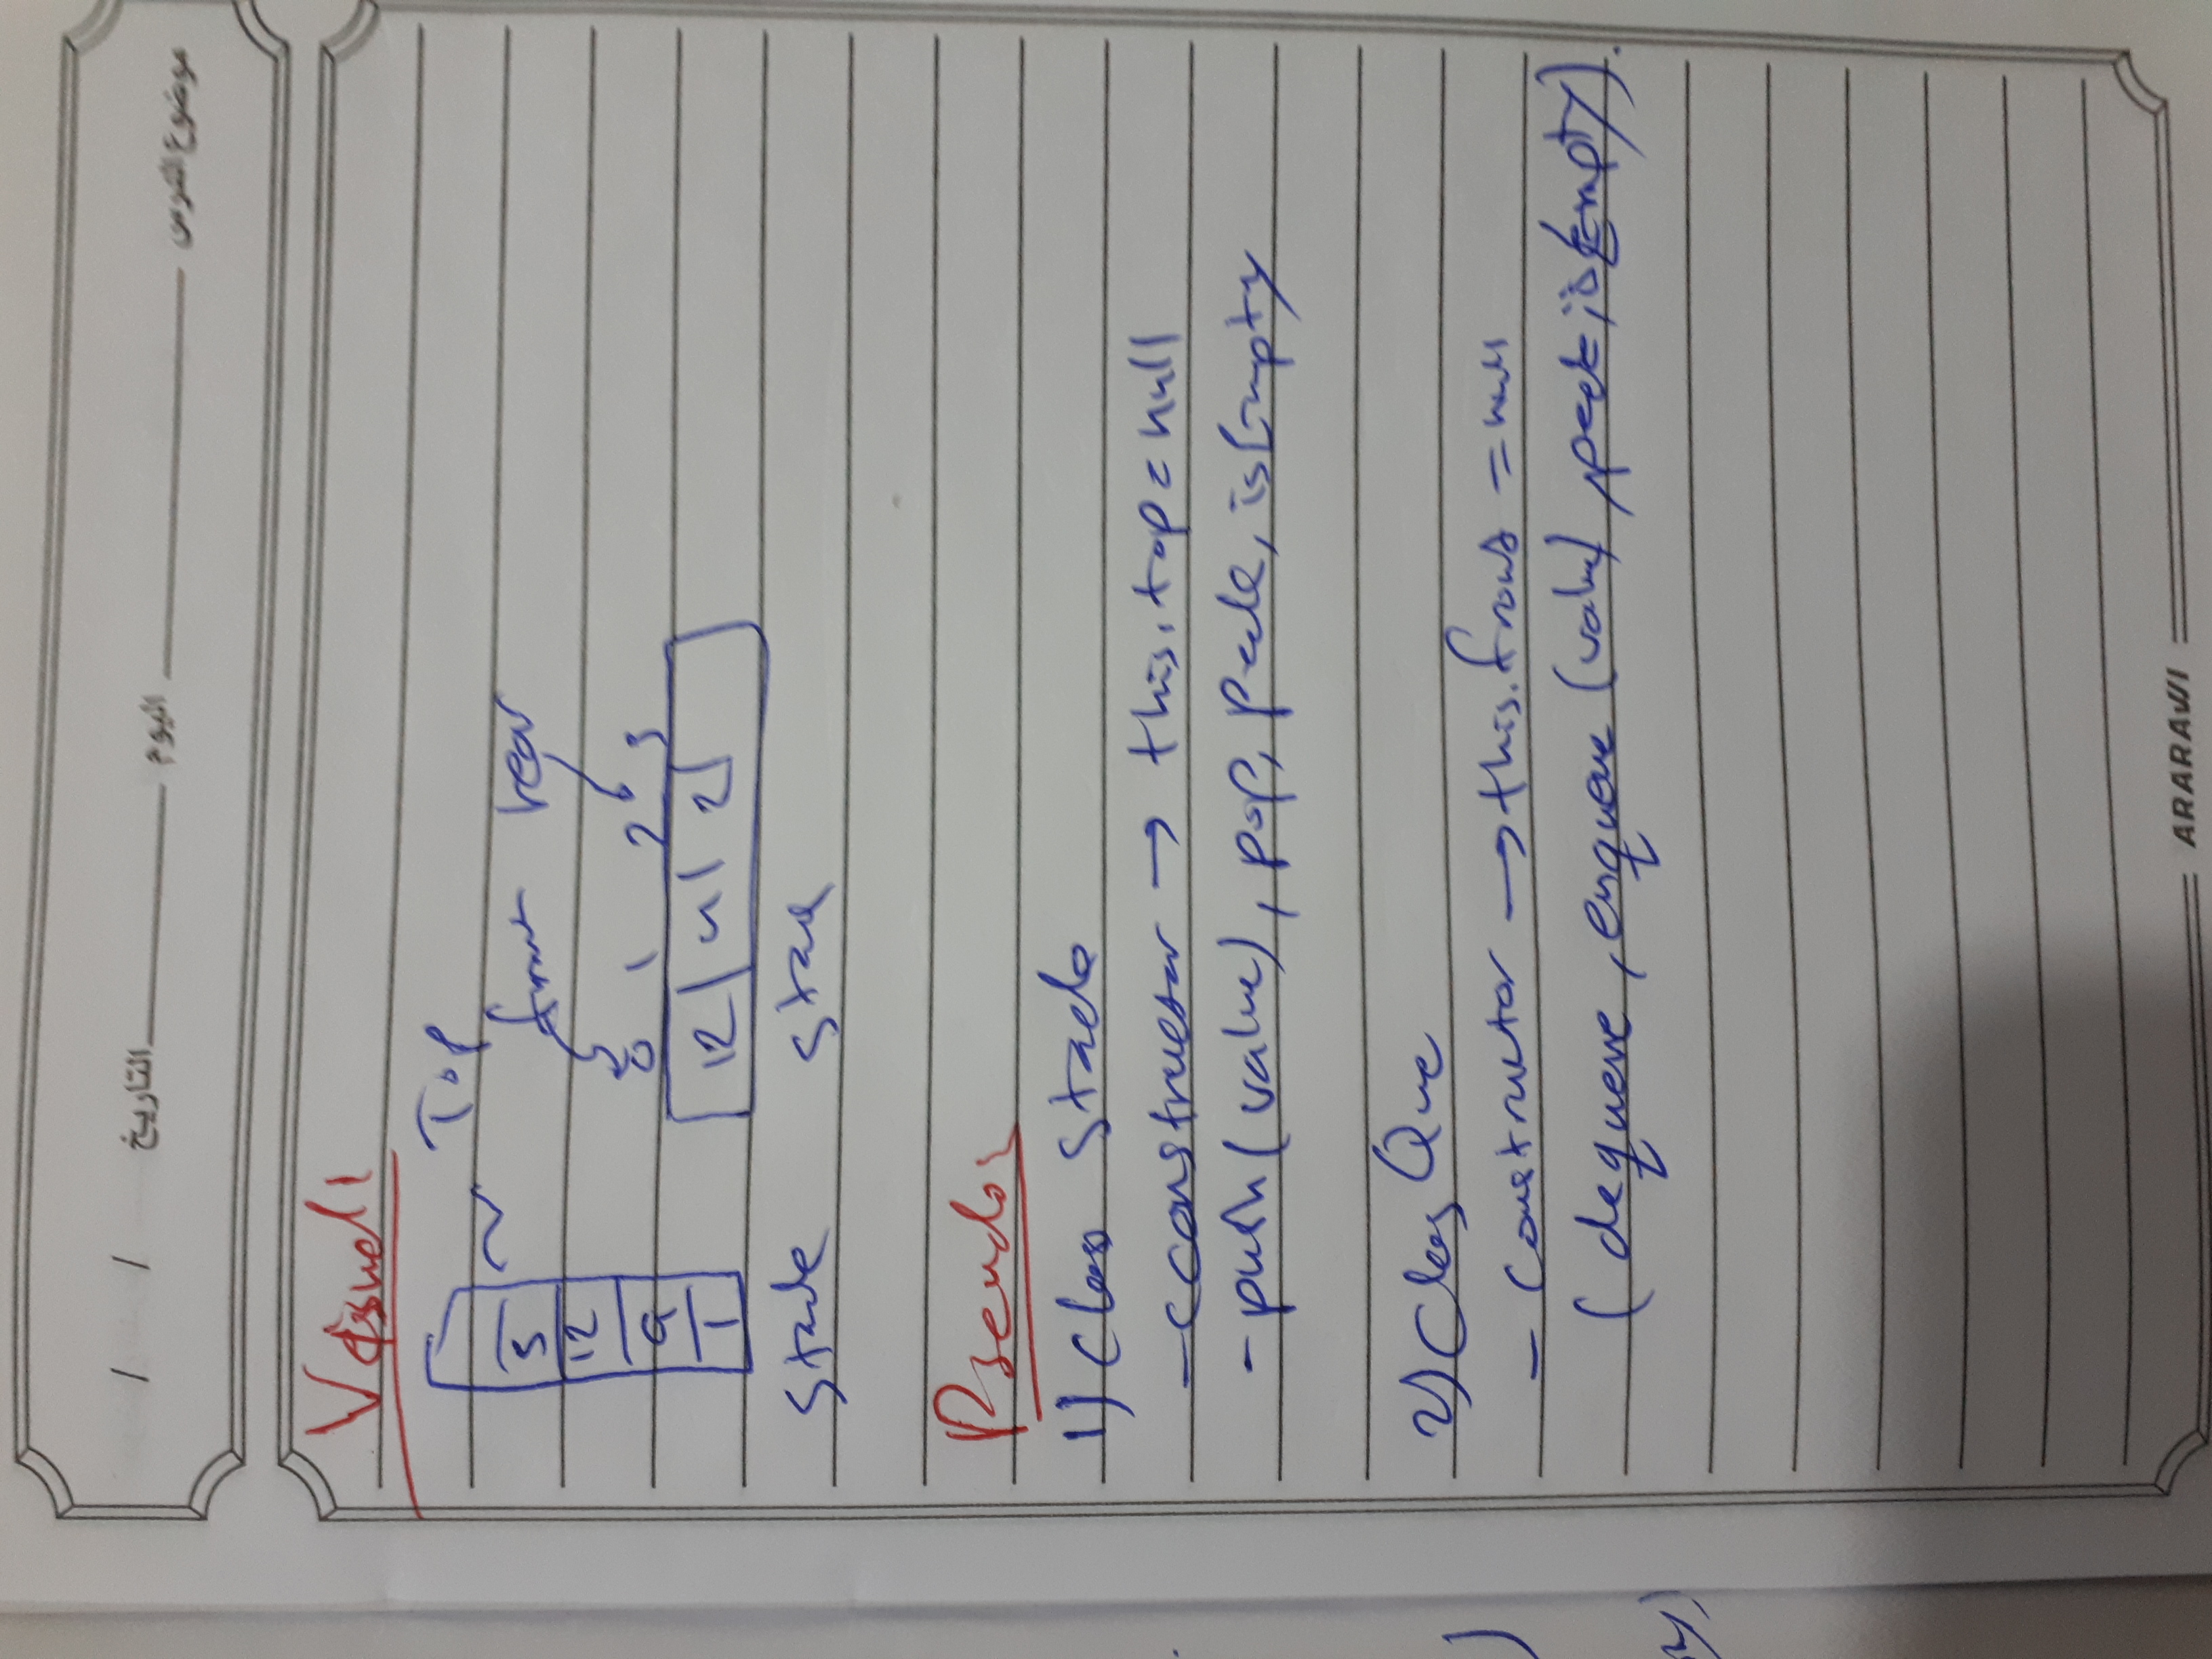 موضوع الدرس اليوم التاريخ / /
Visual
Top
front rear
5
12
0 1 2 3
9
12 4 2
1
Stack
Pseudo:
1) Class Stack
- constructor → this.top = null
- push (value), pop, peek, isEmpty
2) Clas Que
- constructor → this.front = null
( dequeue, enqueue (value), peek, isEmpty).
ARARAWI